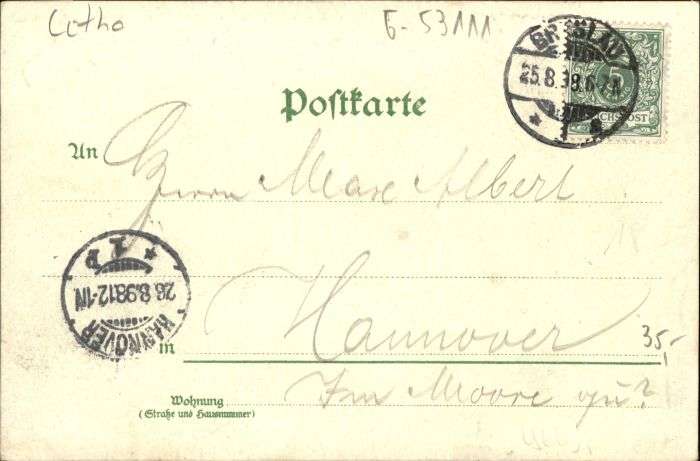 Litho
G-53111
BRESLAU
25.8.98.6-7N.
1 s
REICHSPOST
5
Postkarte
An
Herrn Max Albert
HANNOVER
26.8.98.12-1N
* 1 P *
in
Hannover
35,-
Wohnung
(Straße und Hausnummer)
Im Moore